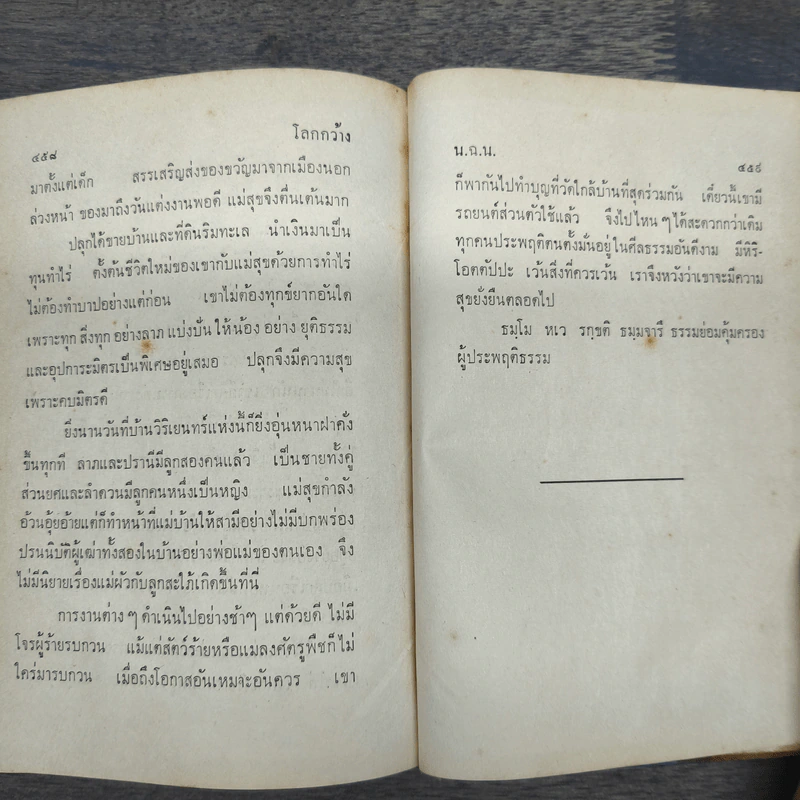 ๔๕๘
โลกกว้าง
มาตั้งแต่เด็ก สรรเสริญส่งของขวัญมาจากเมืองนอก
ล่วงหน้า ของมาถึงวันแต่งงานพอดี แม่สุขจึงตื่นเต้นมาก
ปลุกได้ขายบ้านและที่ดินริมทะเล นำเงินมาเป็น
ทุนทำไร่ ตั้งต้นชีวิตใหม่ของเขากับแม่สุขด้วยการทำไร่
ไม่ต้องทำบาปอย่างแต่ก่อน เขาไม่ต้องทุกข์ยากอันใด
เพราะทุก สิ่งทุก อย่างลาภ แบ่งปั่น ให้น้อง อย่าง ยุติธรรม
และอุปการะมิตรเป็นพิเศษอยู่เสมอ ปลุกจึงมีความสุข
เพราะคบมิตรดี
ยิ่งนานวันที่บ้านวิริเยนทร์แห่งนี้ก็ยิ่งอุ่นหนาฝาคั่ง
ขึ้นทุกที ลาภและปรานีมีลูกสองคนแล้ว เป็นชายทั้งคู่
ส่วนยศและลำดวนมีลูกคนหนึ่งเป็นหญิง แม่สุขกำลัง
อ้วนอุ้ยอ้ายแต่ก็ทำหน้าที่แม่บ้านให้สามีอย่างไม่มีบกพร่อง
ปรนนิบัติผู้เฒ่าทั้งสองในบ้านอย่างพ่อแม่ของตนเอง จึง
ไม่มีนิยายเรื่องแม่ผัวกับลูกสะใภ้เกิดขึ้นที่นี่
การงานต่าง ๆ ดำเนินไปอย่างช้าๆ แต่ด้วยดี ไม่มี
โจรผู้ร้ายรบกวน แม้แต่สัตว์ร้ายหรือแมลงศัตรูพืชก็ไม่
ใคร่มารบกวน เมื่อถึงโอกาสอันเหมาะอันควร เขา
น.ฉ.น.
๔๕๙
ก็พากันไปทำบุญที่วัดใกล้บ้านที่สุดร่วมกัน เดี๋ยวนี้เขามี
รถยนต์ส่วนตัวใช้แล้ว จึงไปไหน ๆ ได้สะดวกกว่าเดิม
ทุกคนประพฤติตนตั้งมั่นอยู่ในศีลธรรมอันดีงาม มีหิริ-
โอตตัปปะ เว้นสิ่งที่ควรเว้น เราจึงหวังว่าเขาจะมีความ
สุขยั่งยืนตลอดไป
ธมฺโม หเว รกฺขติ ธมฺมจารี ธรรมย่อมคุ้มครอง
ผู้ประพฤติธรรม